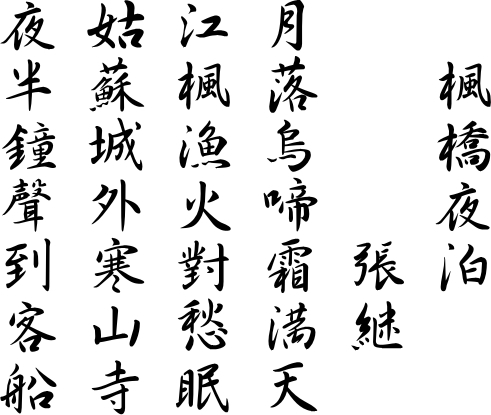 楓橋夜泊
張継
月落烏啼霜満天
江楓漁火對愁眠
姑蘇城外寒山寺
夜半鐘聲到客船